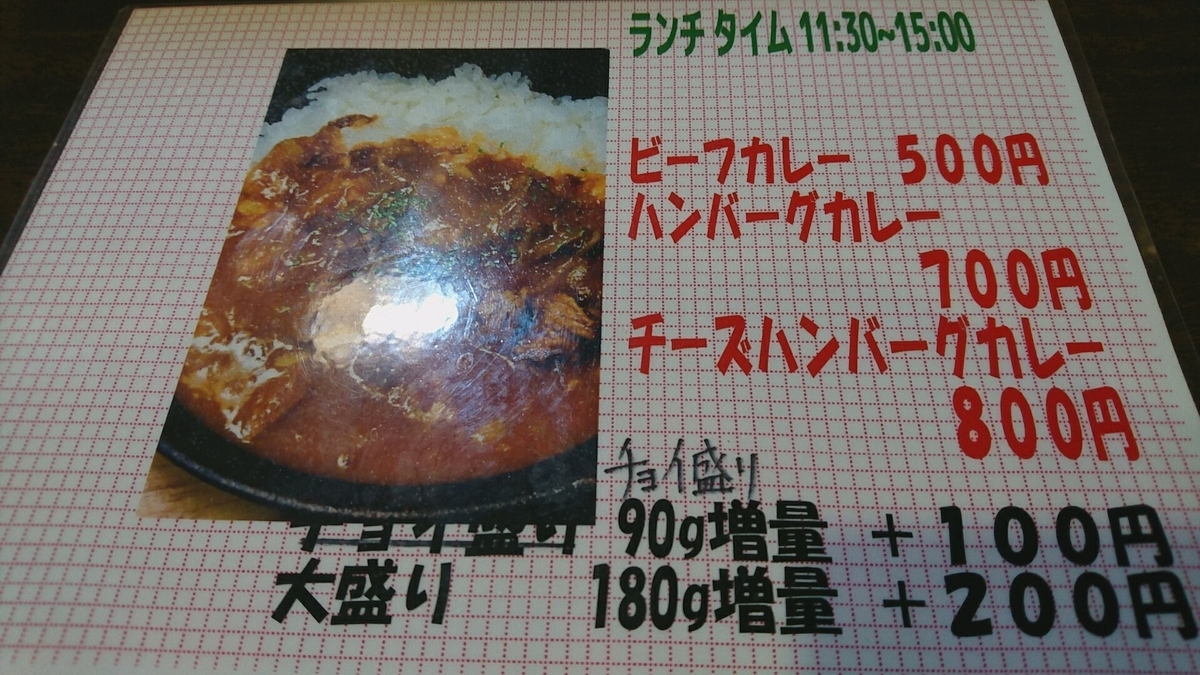 ランチ タイム 11:30~15:00
ビーフカレー 500円
ハンバーグカレー
700円
チーズハンバーグカレー
800円
チョイ盛り
チョイ盛り 90g増量 +100円
大盛り 180g増量 +200円